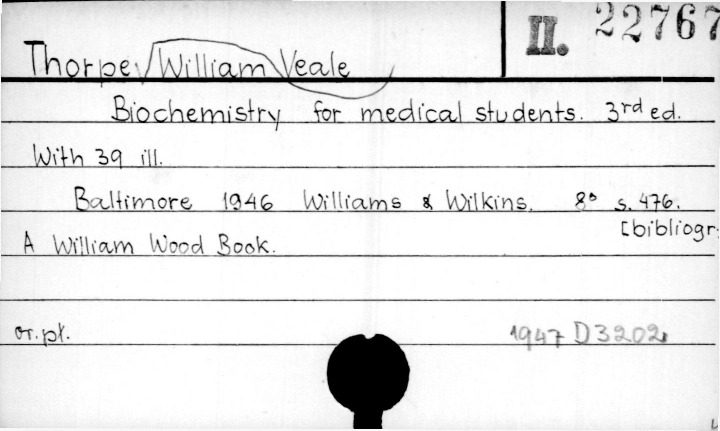 II. 22767
Thorpe William Veale
Biochemistry for medical students. 3rd ed.
With 39 ill.
Baltimore 1946 Williams & Wilkins. 8° s. 476.
[bibliogr.
A William Wood Book.
or. pł.
1947 D 3202